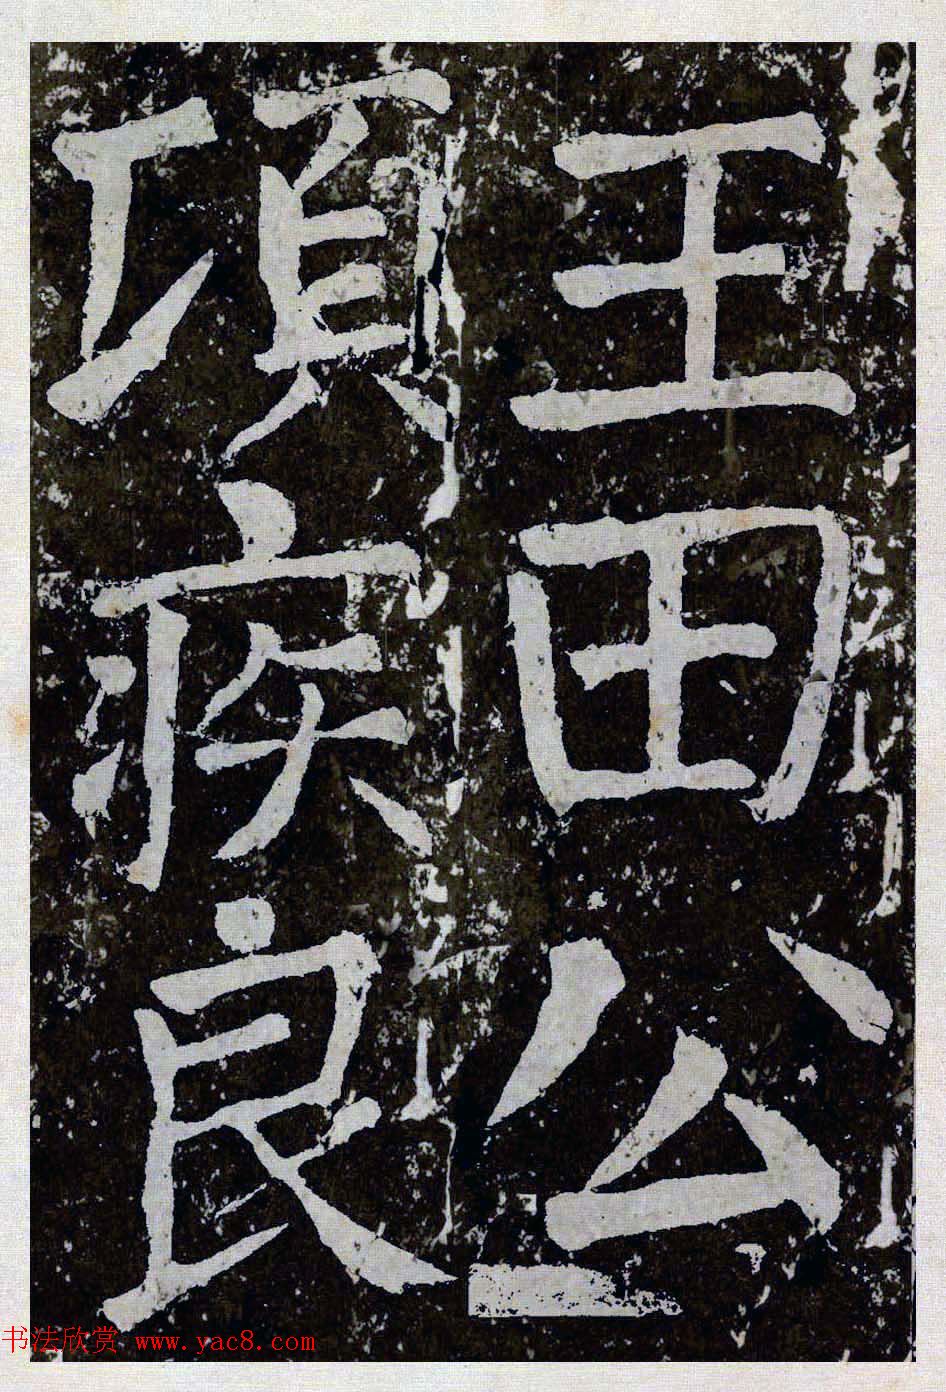 王田公
項疾良
书法欣赏 www.yac8.com